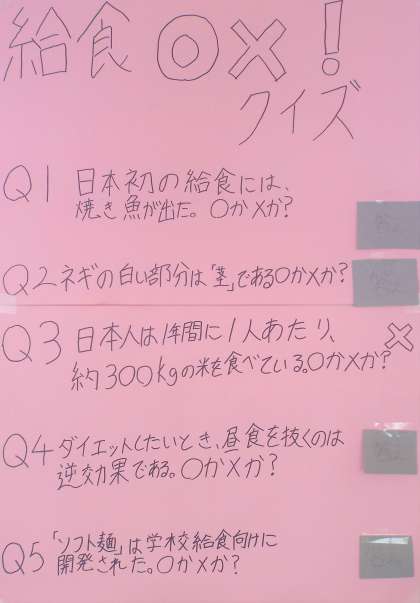 給食○×!
クイズ
Q1 日本初の給食には、
焼き魚が出た。○か×か?
Q2 ネギの白い部分は「茎」である○か×か?
Q3 日本人は1年間に1人あたり、
約300kgの米を食べている。○か×か?
×
Q4 ダイエットしたいとき、昼食を抜くのは
逆効果である。○か×か?
Q5 「ソフト麺」は学校給食向けに
開発された。○か×か?